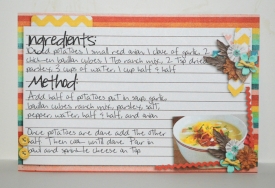 Ingredients:
Diced potatoes 1 small red onion 1 clove of garlic 2
chicken boullion cubes 1 Tbs ranch mix, 2 Tsp dried
parsley 5 cups of water 1 cup half & half
Method
Add half of potatoes put in soup, garlic
boullion cubes, ranch mix, parsley, salt,
pepper, water, half & half, and onion
Once potatoes are done add the other
half. Then cook until done. Pour in
and sprinkle cheese on top